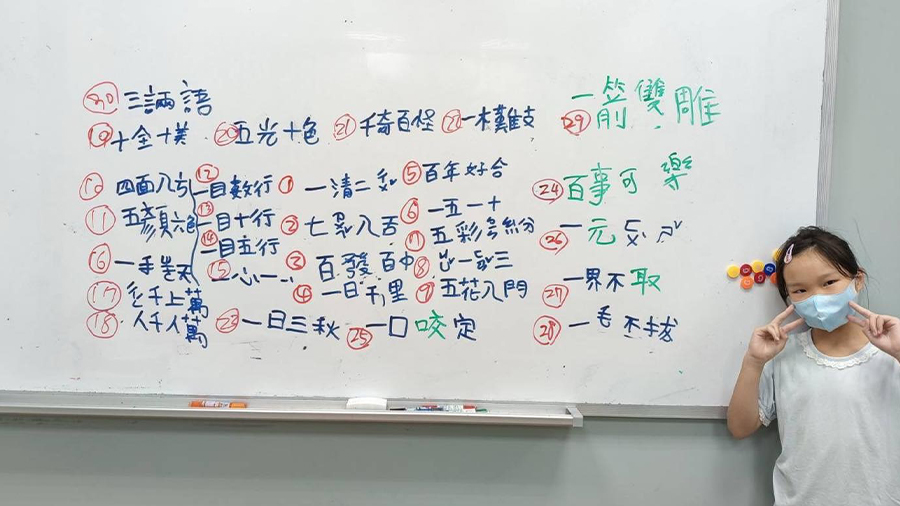 30 三兩語
19 十全十美 20 五光十色 21 千奇百怪 一木難支
29 一箭雙雕
10 四面八方 12 一目數行 1 一清二 5 百年好合
24 百事可樂
11 五顏六色 13 一目十行 2 七 八百 6 一五一十
26 一元
14 一目五行 五彩 紛
16 一手 天 15 一心一 百發百中 8 一 三
一界不取
17 千上萬 4 一日千里 五花八門
18 人千人萬 23 一日三秋 25 一口咬定
28 一毛不拔